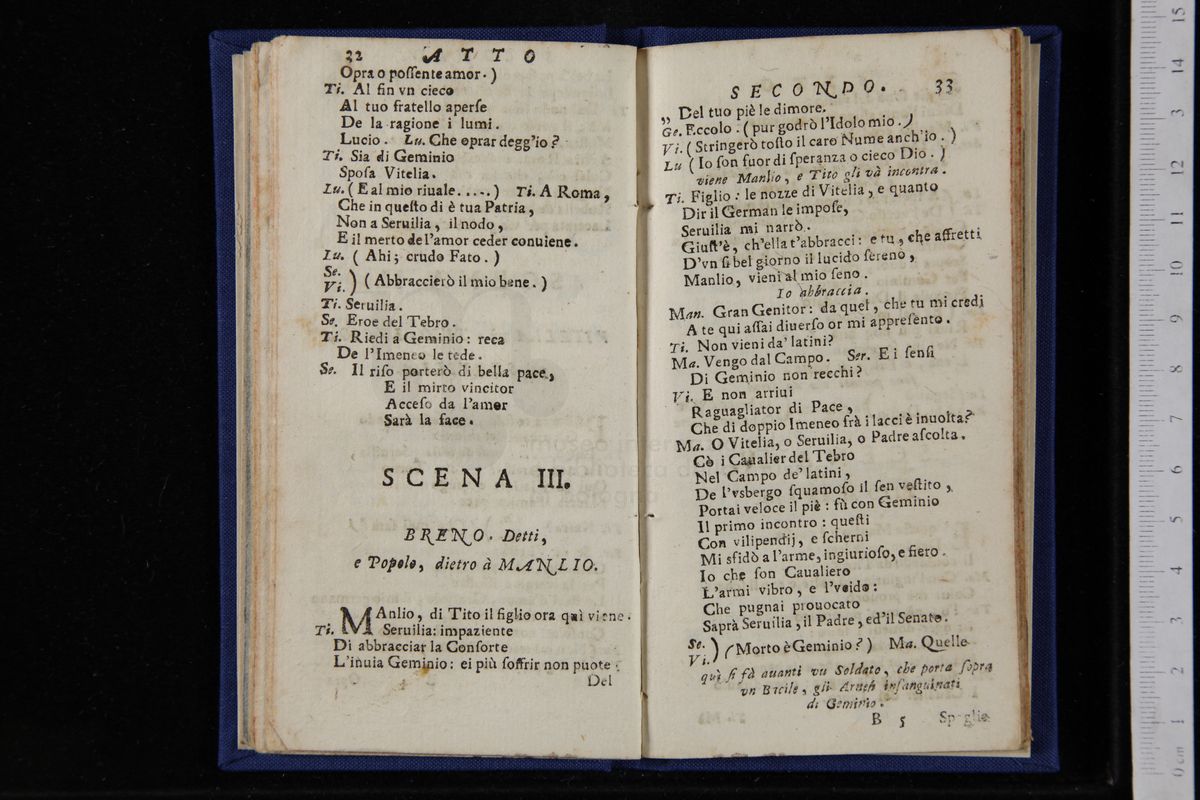 32 ATTO
Opra o poſſente amor. )
Ti. Al fin vn cieco
Al tuo fratello aperſe
De la ragione i lumi.
Lucio. Lu. Che oprar degg'io?
Ti. Sia di Geminio
Spoſa Vitelia.
Lu. ( E al mio riuale. . . . . ) Ti. A Roma,
Che in queſto di è tua Patria,
Non a Seruilia, il nodo,
E il merto del'amor ceder conuiene.
Lu. ( Ahi; crudo Fato. )
Se.
Vi. ) ( Abbraccierò il mio bene. )
Ti. Seruilia.
Se. Eroe del Tebro.
Ti. Riedi a Geminio: reca
De l'Imeneo le tede.
Se. Il riſo porterò di bella pace,
E il mirto vincitor
Acceſo da l'amor
Sarà la face.
SCENA III.
BRENO. Detti,
e Popolo, dietro à MANLIO.
MAnlio, di Tito il figlio ora quì viene.
Ti. Seruilia: impaziente
Di abbracciar la Conſorte
L'inuia Geminio: ei più ſoffrir non puote
Del
SECONDO. 33
„ Del tuo piè le dimore.
Ge. Eccolo: ( pur godrò l'Idolo mio. )
Vi. ( Stringerò toſto il caro Nume anch'io. )
Lu ( Io ſon fuor di ſperanza o cieco Dio. )
viene Manlio, e Tito gli và incontra.
Ti. Figlio: le nozze di Vitelia, e quanto
Dir il German le impoſe,
Seruilia mi narrò.
Giuſt'è, ch'ella t'abbracci: e tu, che affretti
D'vn ſi bel giorno il lucido ſereno,
Manlio, vieni al mio ſeno.
lo abbraccia.
Man. Gran Genitor: da quel, che tu mi credi
A te qui aſſai diuerſo or mi appreſento.
Ti. Non vieni da' latini?
Ma. Vengo dal Campo. Ser. E i ſenſi
Di Geminio non rechi?
Vi. E non arriui
Raguagliator di Pace,
Che di doppio Imeneo frà i lacci è inuolta?
Ma. O Vitelia, o Seruilia, o Padre aſcolta.
Cò i Caualier del Tebro
Nel Campo de' latini,
De l'vsbergo ſquamoſo il ſen veſtito,
Portai veloce il piè: fù con Geminio
Il primo incontro: queſti
Con vilipendij, e ſcherni
Mi sfidò a l'arme, ingiurioſo, e fiero.
Io che ſon Caualiero
L'armi vibro, e l'vcido:
Che pugnai prouocato
Saprà Seruilia, il Padre, ed'il Senato.
Se.
Vi. ) ( Morto è Geminio? ) Ma. Quelle
quì ſi fà auanti vn Soldato, che porta ſopra
vn Bacile, gli Arneſi inſanguinati
di Geminio.
B 5 Spoglie